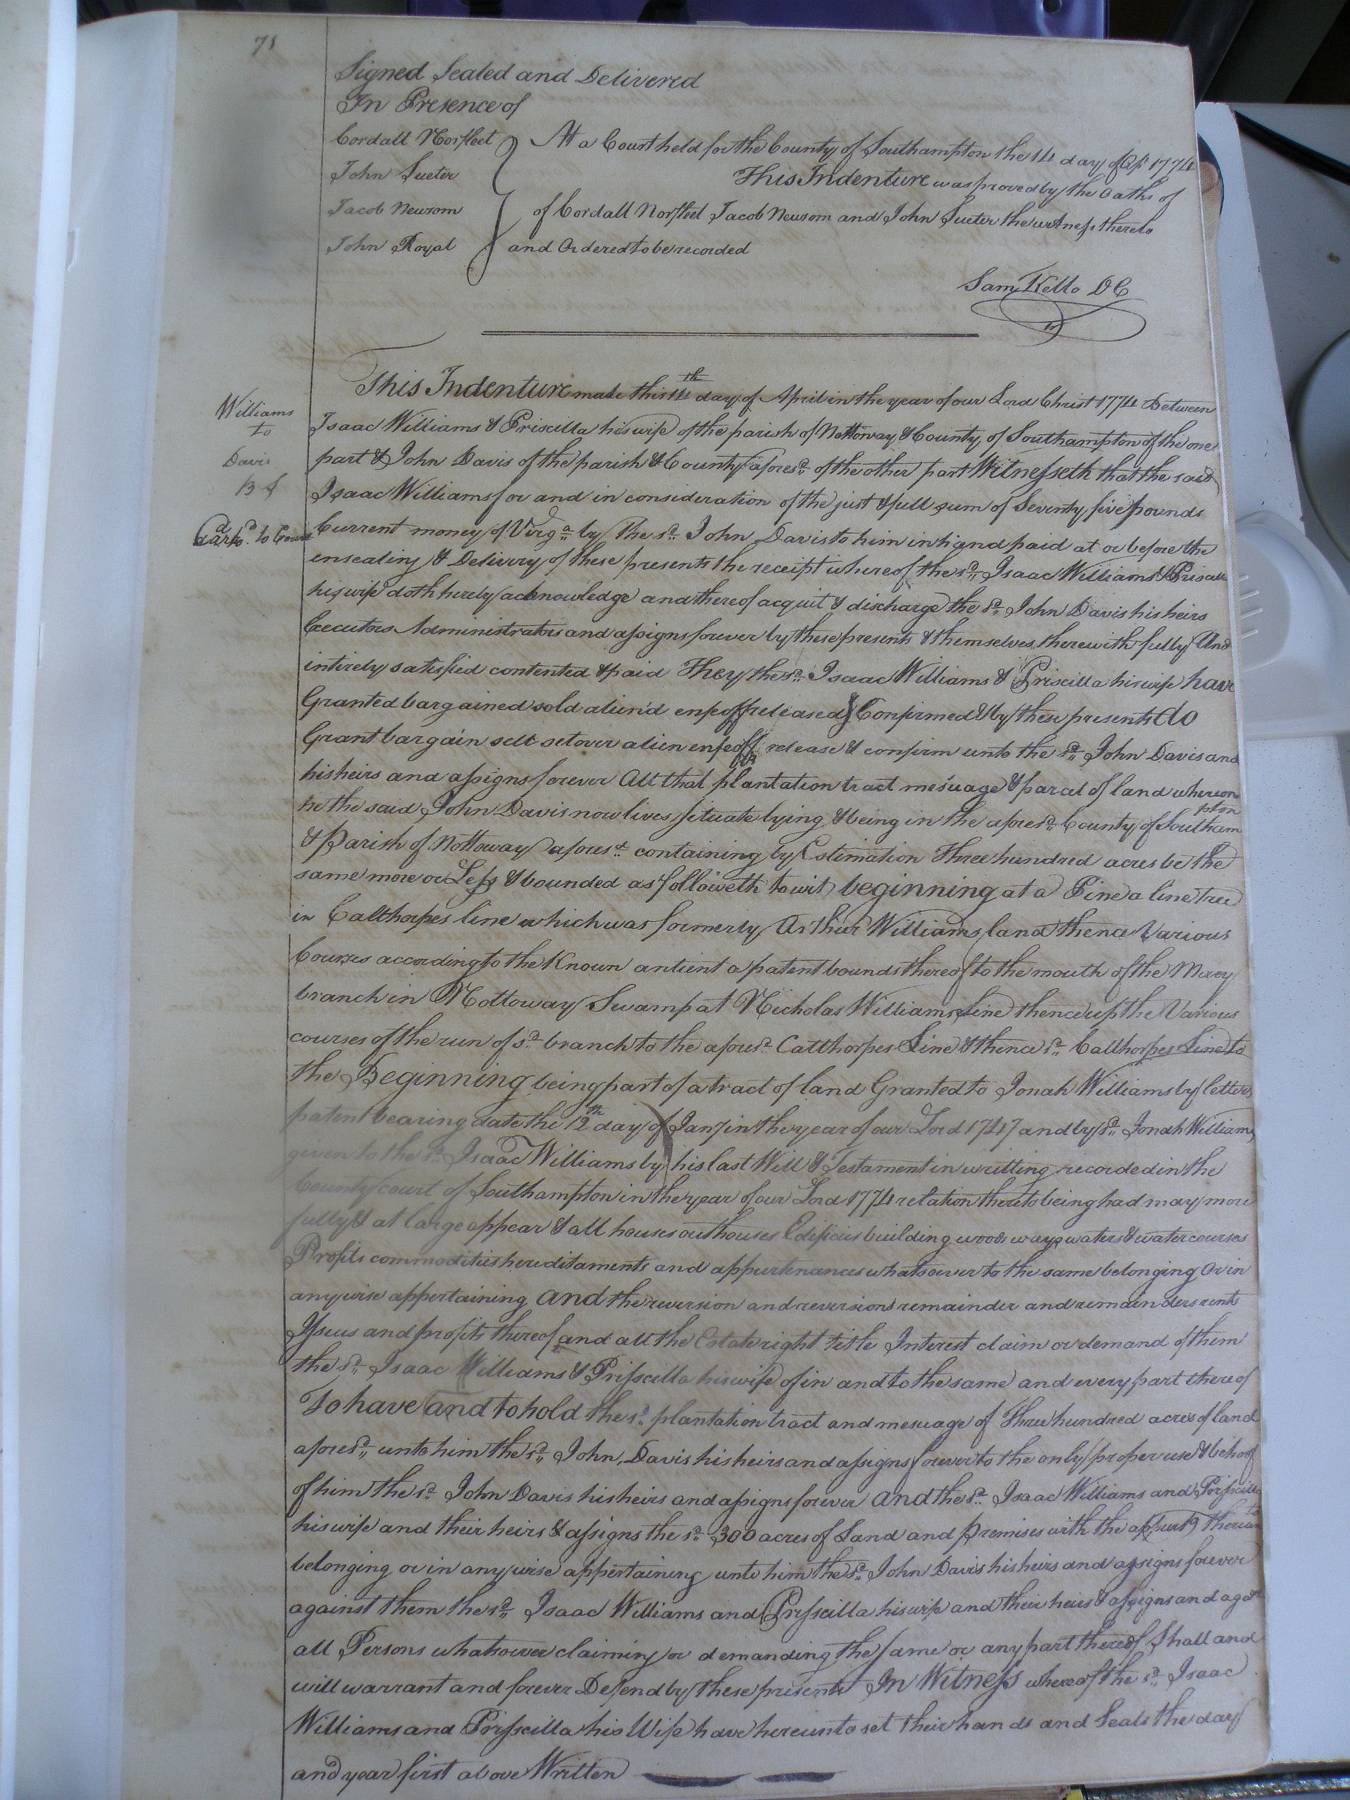 71
Signed Sealed and Delivered
In Presence of
Cordall Norfleet
John Sueter
Jacob Newsom
John Royal
At a Court held for the County of Southampton the 14 day of Ap. 1774
This Indenture was proved by the Oaths of
of Cordall Norfleet Jacob Newsom and John Sueter the witness thereto
and Ordered to be recorded
Sam Kello DC
Williams
to
Davis
B & S
to
This Indenture made this 14th day of April in the year of our Lord Christ 1774 Between
Isaac Williams & Priscilla his wife of the parish of Nottoway & County of Southampton of the one
part & John Davis of the parish & County afores.d of the other part Witnesseth that the said
Isaac Williams for and in consideration of the just & full sum of Seventy five pounds
Current money of Virg.a by the s.d John Davis to him in hand paid at or before the
ensealing & Delivery of these presents the receipt whereof the s.d Isaac Williams & Priscilla
his wife doth hereby acknowledge and thereof acquit & discharge the s.d John Davis his heirs
Executors Administrators and assigns forever by these presents & themselves therewith fully And
intirely satisfied contented & paid They the s.d Isaac Williams & Priscilla his wife have
Granted bargained sold aliend enfeoff released & Confirmed & by these presents do
Grant bargain sell setover alien enfeoff release & confirm unto the s.d John Davis and
his heirs and assigns forever All that plantation tract mesuage & parcel of land whereon
he the said John Davis now lives situate lying & being in the afores.d County of Southampton
& Parish of Nottoway afores.d containing by Estimation Three hundred acres be the
same more or Less & bounded as followeth to wit beginning at a Pine a line tree
in Calthorpes line which was formerly Arthur Williams land thence Various
Courses according to the Known antient a patent bounds thereof to the mouth of the
branch in Nottoway Swamp at Nicholas Williams Line thence up the Various
courses of the run of s.d branch to the afores.d Calthorpes Line & thence s.d Calthorpes Line to
the Beginning being part of a tract of land Granted to Jonah Williams by letters
patent bearing date the 12th day of Jany in the year of our Lord 1747 and by s.d Jonah Williams
given to the s.d Isaac Williams by his last Will & Testament in writting recorded in the
County court of Southampton in the year of our Lord 1774 relation thereto being had may more
fully & at large appear & all houses outhouses Edificies building woods ways waters & watercourses
Profits commodities hereditaments and appurtenances whatsoever to the same belonging Or in
any wise appertaining and the reversion and reversions remainder and remainders rents
Issues and profits thereof and all the Estate right title Interest claim or demand of them
the s.d Isaac Williams & Prisscilla his wife of in and to the same and every part thereof
To have and to hold the s.d plantation tract and mesuage of Three hundred acres of land
afores.d unto him the s.d John Davis his heirs and assigns forever to the only proper use & behoof
of him the s.d John Davis his heirs and assigns forever and the s.d Isaac Williams and Prisscilla
his wife and their heirs & assigns the s.d 300 acres of Land and premises with the
belonging or in any wise appertaining unto him the s.d John Davis his heirs and assigns forever
against them the s.d Isaac Williams and Prisscilla his wife and their heirs & assigns and
all Persons whatsoever claiming or demanding the same or any part thereof Shall and
will warrant and forever Defend by these presents In Witness whereof the s.d Isaac
Williams and Prisscilla his Wife have hereunto set their hands and Seals the day
and year first above Written